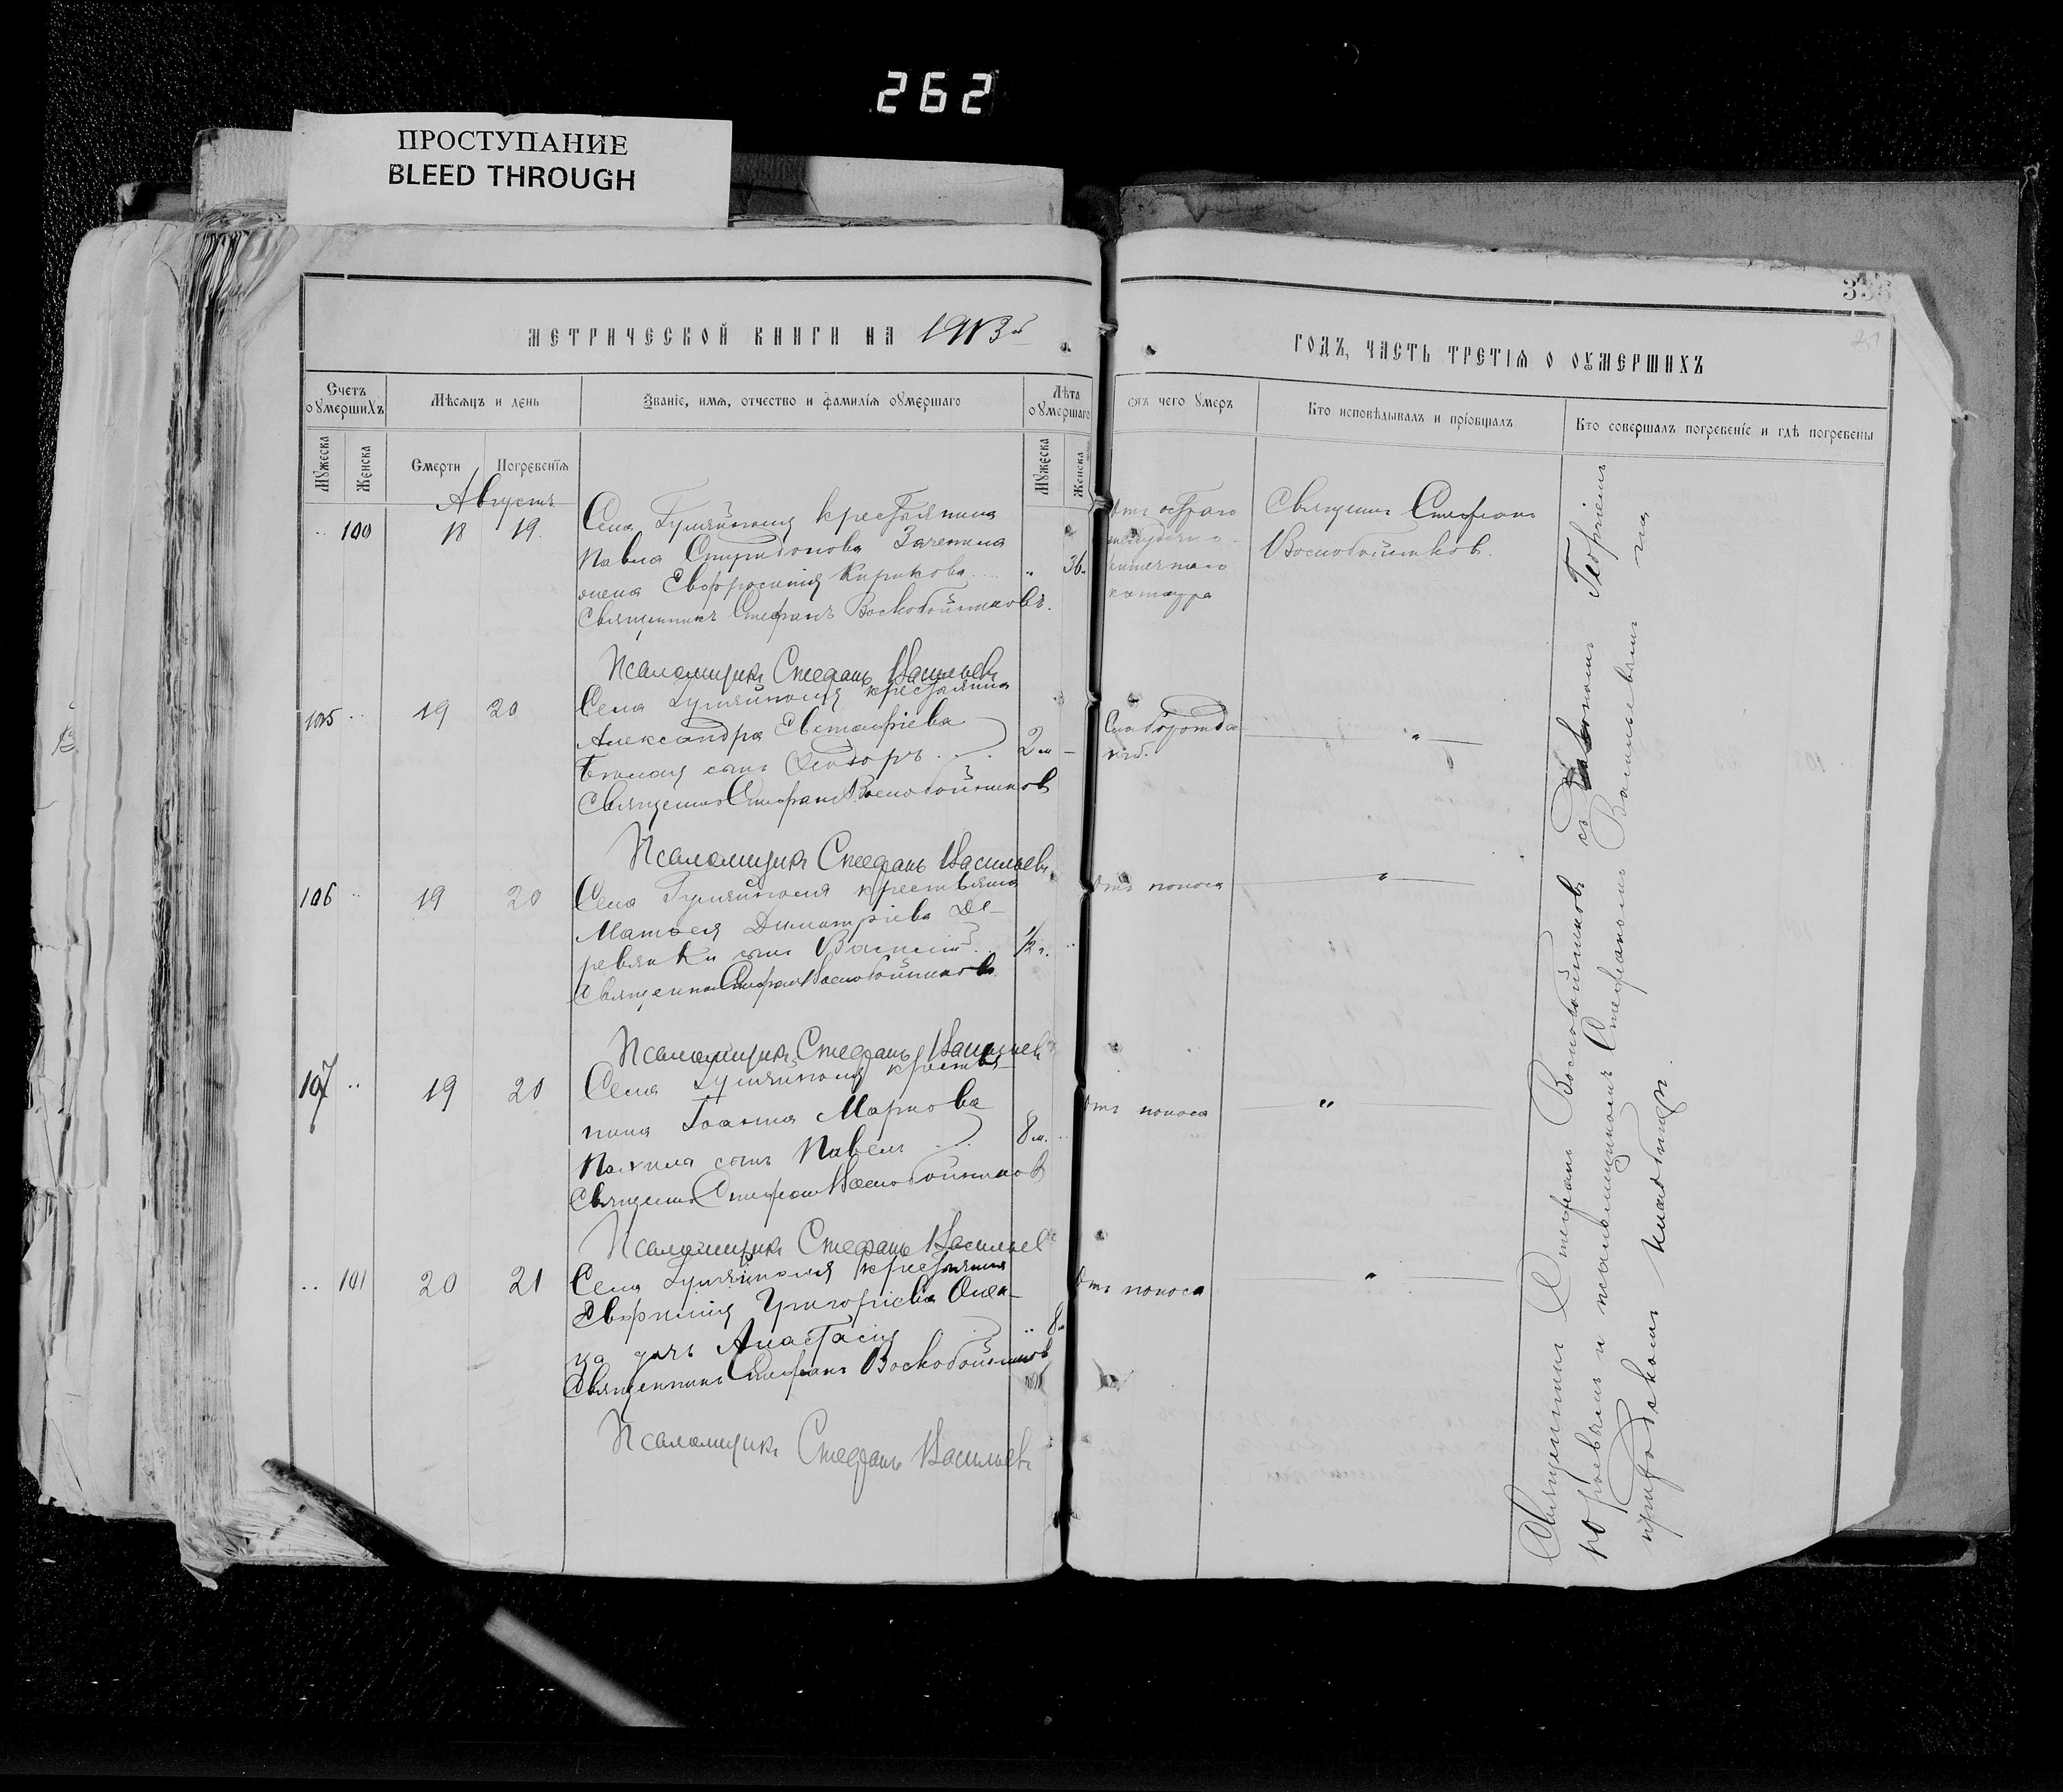 262
ПРОСТУПАНИЕ
BLEED THROUGH
336
МЕТРИЧЕСКОЙ КНИГИ НА 1913й
ГОДЪ, ЧАСТЬ ТРЕТІЯ О ОУМЕРШИХЪ
Счетъ оумершихъ
Мѣсяцъ и день
Званіе, имя, отчество и фамилія оумершаго
Лѣта оумершаго
отъ чего умеръ
Кто исповѣдывалъ и пріобщалъ
Кто совершалъ погребеніе и гдѣ погребены
Мужеска
Женска
Смерти
Погребенія
Мужеска
Женска
Августъ
100 18 19
Села Гуляйполя крестьянина
Павла Спиридонова
жена Евфросинія Кирикова 36
Священникъ Стефанъ Воскобойниковъ.
Псаломщикъ Стефанъ Васильевъ
Отъ остраго
желудочно-
кишечнаго
катарра
Священ Стефанъ
Воскобойников.
105 19 20
Села Гуляйполя крестьянина
Александра Евстафіева
сынъ Ѳеодоръ 2 м
Священ Стефанъ Воскобойников
Псаломщикъ Стефанъ Васильевъ
106 19 20
Села Гуляйполя крестьянина
Матѳея Димитріева Де-
ревянки сынъ Василій 1/2 г.
Священник Стефан Воскобойников
Псаломщикъ Стефанъ Васильевъ
Отъ поноса
107 19 20
Села Гуляйполя крестья-
нина Іоанна Маркова
сынъ Павелъ 8 м.
Священ Стефан Воскобойников
Псаломщикъ Стефанъ Васильев
Отъ поноса
101 20 21
Села Гуляйполя крестьянина
Григоріева
дочь Анастасія 8 м
Священникъ Стефанъ Воскобойников
Псаломщикъ Стефанъ Васильевъ
Отъ поноса
Священникъ Стефанъ Воскобойников съ діакономъ Георгіемъ
и псаломщикомъ Стефаномъ Васильевымъ на
приходскомъ кладбищѣ.